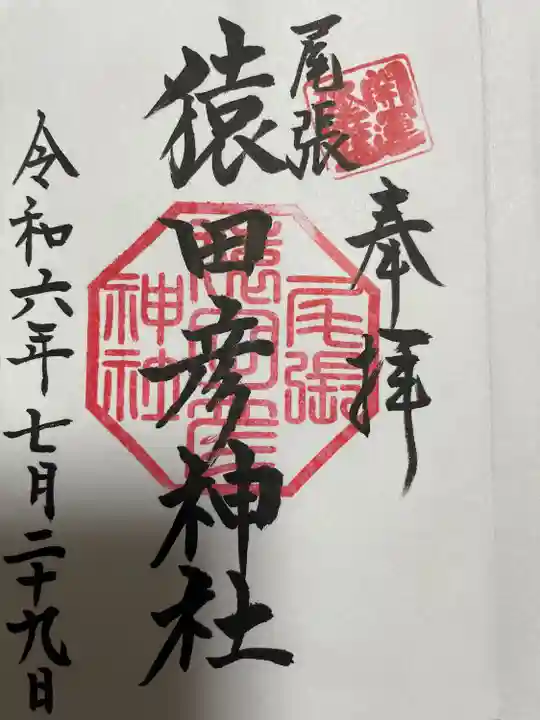 奉拝
開運
尾張
猿田彦神社
尾張
猿田彦
神社
令和六年七月二十九日